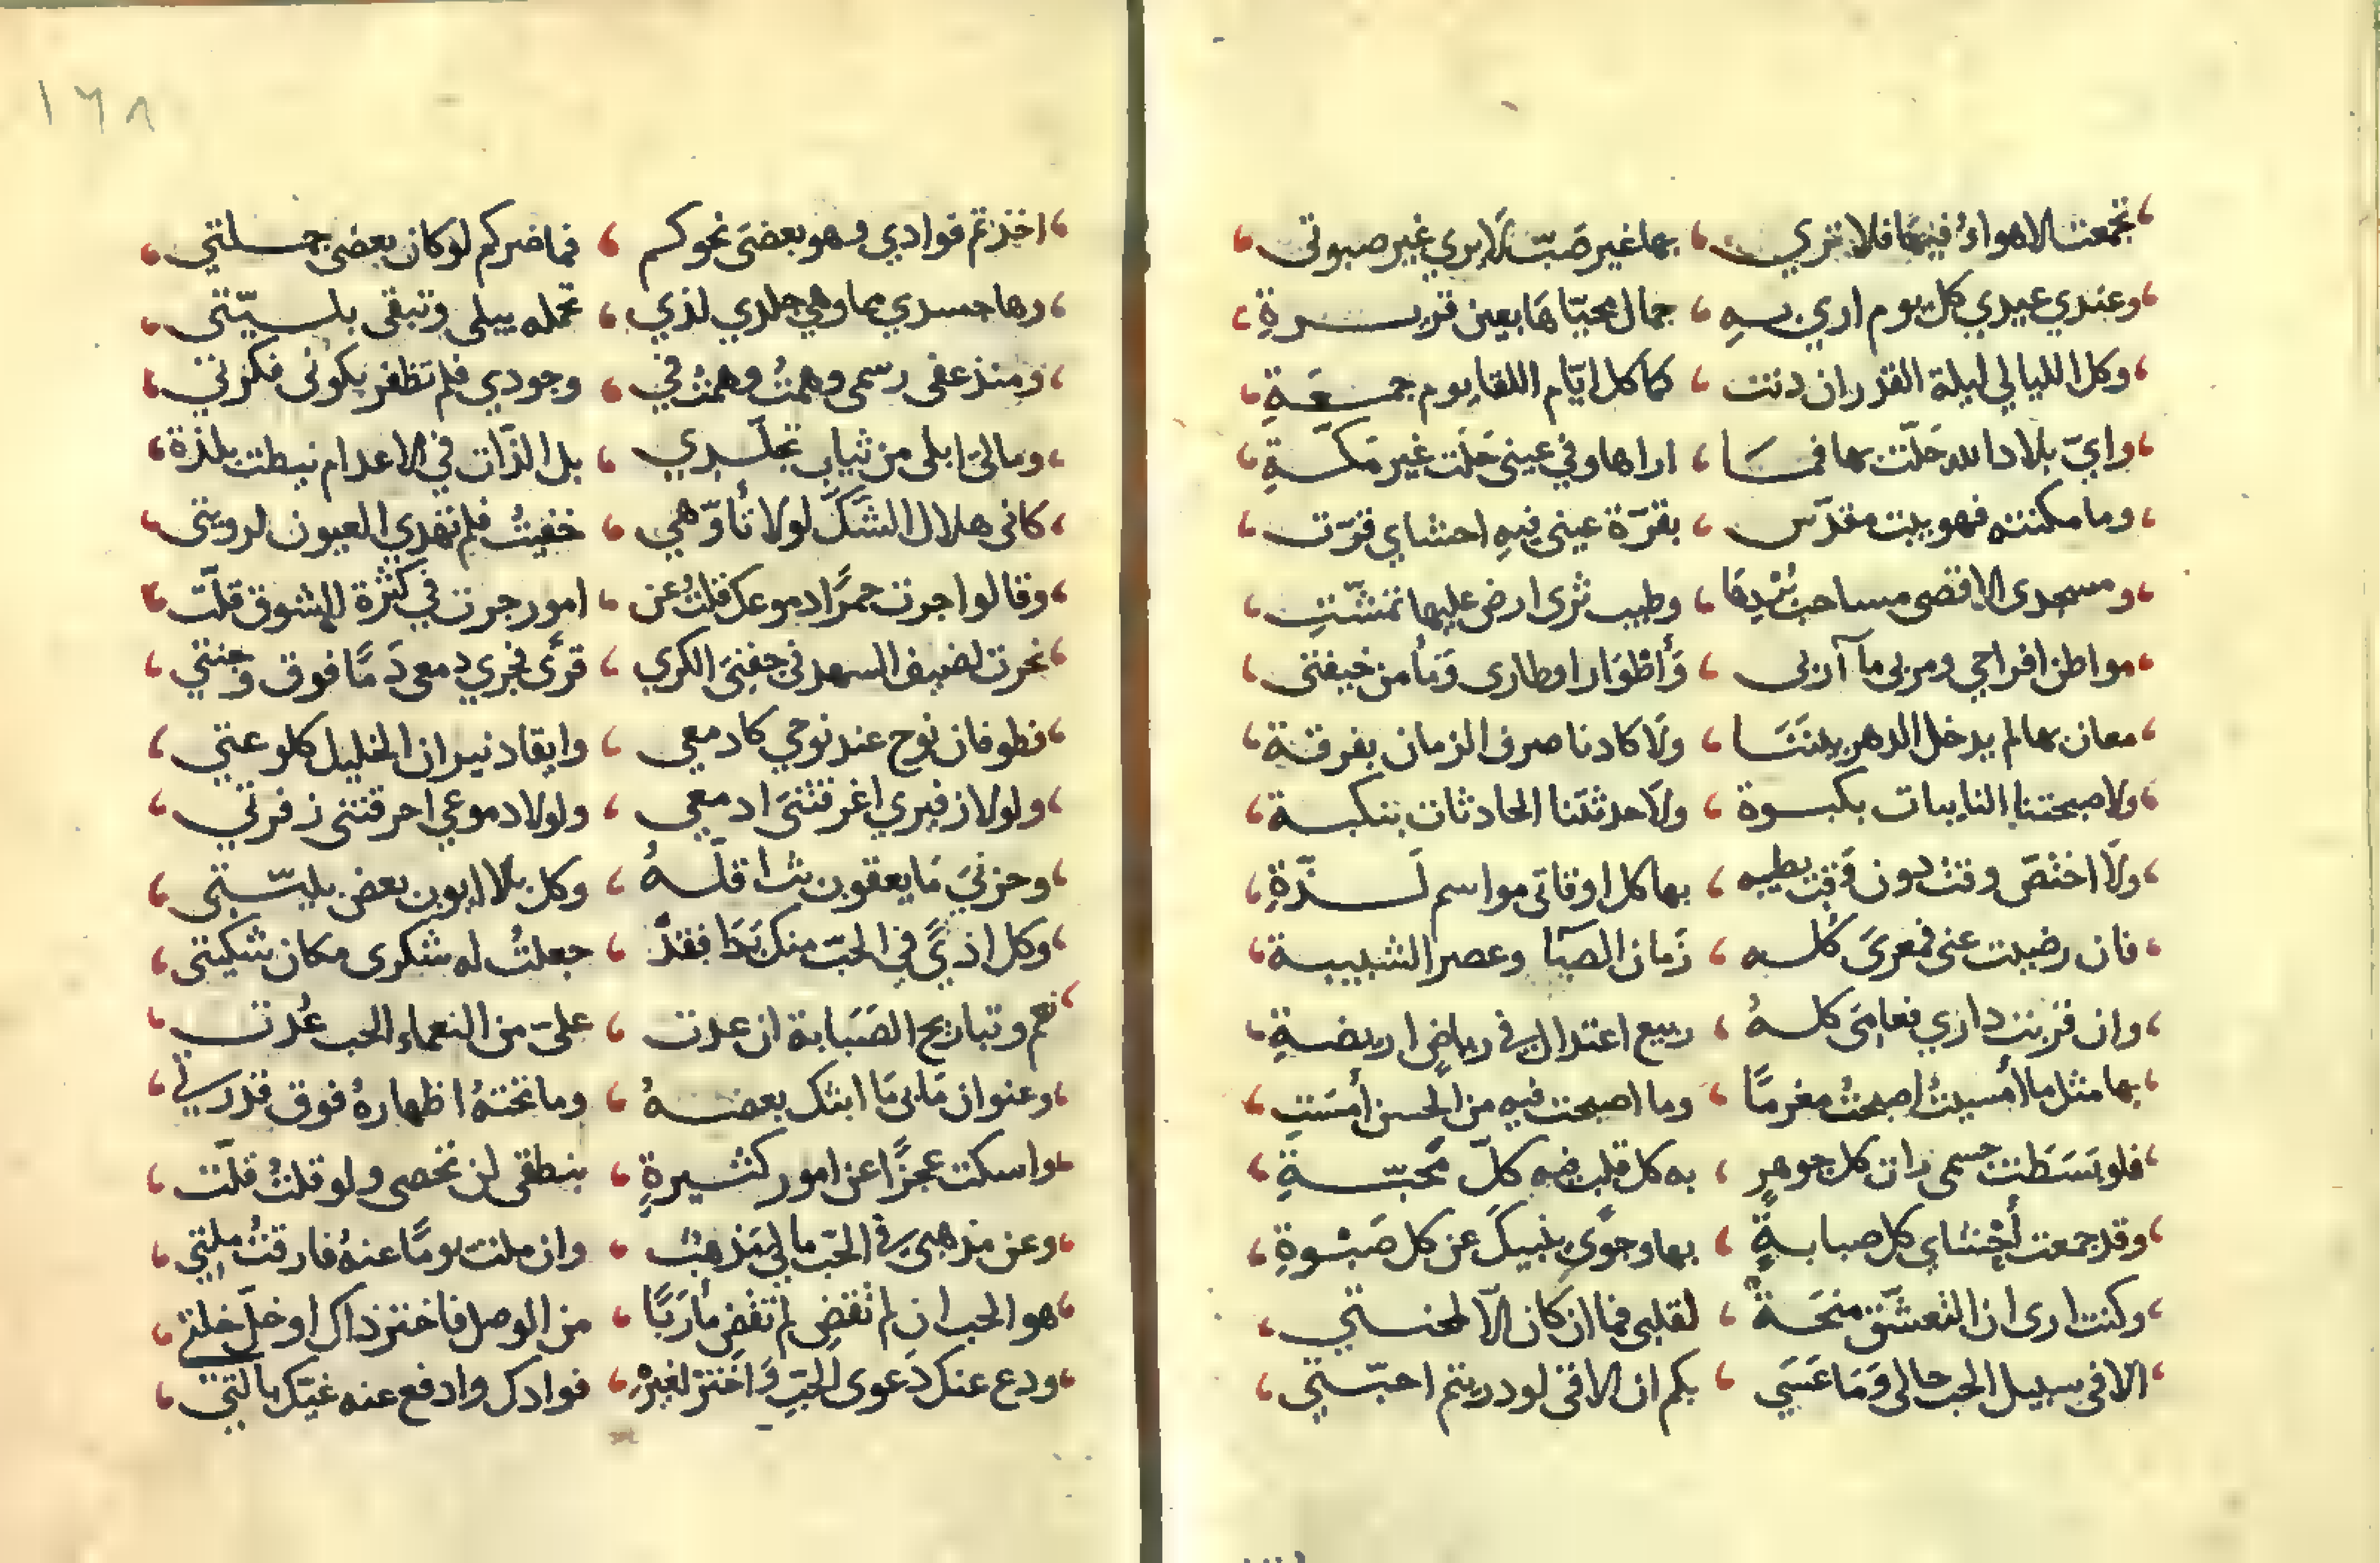 تجمعت الاهواءُ فيها فلا تري بها غير صَبّ لَا يري غير صبوتى
وعندي عيدي كل يوم اري به جمال محيّاهَا بعين قريرةِ
وكل الليالي ليلة القدر ان دنت كما كل ايّام اللقا يوم جمعَةِ
وايّ بلاد الله حَلّت بها فمَا اراها وفي عينى حَلَت غير مَكّةِ
وما سكنته فهو بيت مقدّس بقرّة عينى فيهِ احشاي قرّت
ومسجدى الاقصى مساحب بُرْدِهَا وطيب ثرى ارض عليها تمشّتِ
مواطن افراحي ومربى مآربى وَأطْوَار اوطارى وَمَأمن خيفتى
مغان بها لم يدخل الدهر بيننَا ولَا كادنا صرف الزمان بفرقة
ولا صبحتنا النايبات بكبوة ولَا حدثتنا الحادثات بنكبة
ولَا اختصّ وقت دون وَقت بطيبه بها كل اوقاتى مواسم لَذّةِ
فان رضيت عنى فعمرىَ كُله زَمان الصبَا وعصر الشبيبة
وان قربت داري فعامىَ كلهُ ربيع اعتدال فى رياضٍ اريضةِ
بها مثل ما أمسيتُ اصبحتُ مغرمًا وما اصبحت فيه من الحسن أمسَتِ
فلو بَسَطَتْ جسمى رات كل جوهرٍ به كل قلب فيه كلّ مَحبّةِ
وقد جمعت أحْشاي كل صبابةٍ بها وجوًى ينبيكَ عن كل صَبْوةِ
وكنت ارى ان التعشّق منحَةٌ لقلبى فما ان كان الّا لمحنتي
الا فى سبيل الحب حالى وَمَا عَسَي بكم ان الاقى لو دريتم احبّتي
١٦٨
اخذتم فوادي وهو بعضىَ نحوكم فما ضركم لو كان بعضى جملتي
وها جسدي مما وهي جلدي لذي تحمله يبلى وتبقى بليّتى
ومنذ عفى رسمى وهمتُ وهمتُ في وجودي فلم تظفر بكونى فكرتي
ومالىَ ابلى من ثياب تجلّدي بل الذّات في الاعدام نيطت بلذة
كانى هلال الشكّ لولا تأوّهي خفيتُ فلم تهدي العيون لرويتى
وقالوا جرت حمرًا دموعك قلتُ عن امور جرت في كثرة الشوق قلّت
نحرت لضيف السهد فى جفنىَ الكري قرًى فجري دمعى دَمًا فوق وجنتي
فطوفان نوح عند نوحي كادمعي وايقاد نيران الخليل كلوعتي
ولولا زفيري اغرقتنىَ ادمعي ولولا دموعي احرقتنى زفرتي
وحزنيَ مَا يعقوب بث اقلّهُ وكل بلا ايوب بعض بليّتى
وكل اذىً في الحبّ منك بَدَا فقد جعلتُ له شكرى مكان شكيتى
نعم وتباريح الصَبَابة ان عدت علىّ من النعماء الحب عُدت
وعنوان مَا بى مَا ابثك بعضهُ وما تحتهُ اظهارهُ فوق قدرتي
واسكت عجزًا عن امور كثيرةٍ بنطقى لن تحصى ولو قلتُ قلّت
وعن مذهبى في الحبّ ما لي مَذهبُ وان ملت يومًا عنهُ فارقتُ ملتي
هو الحب ان لم تقضِ لم تقضِ مأرَبًا من الوصل فاختر ذاك او خلّ خلتي
ودع عنك دَعوى الحبّ وَاخْتر لغيرهِ فوادك وادفع عنه غيّك بالتي